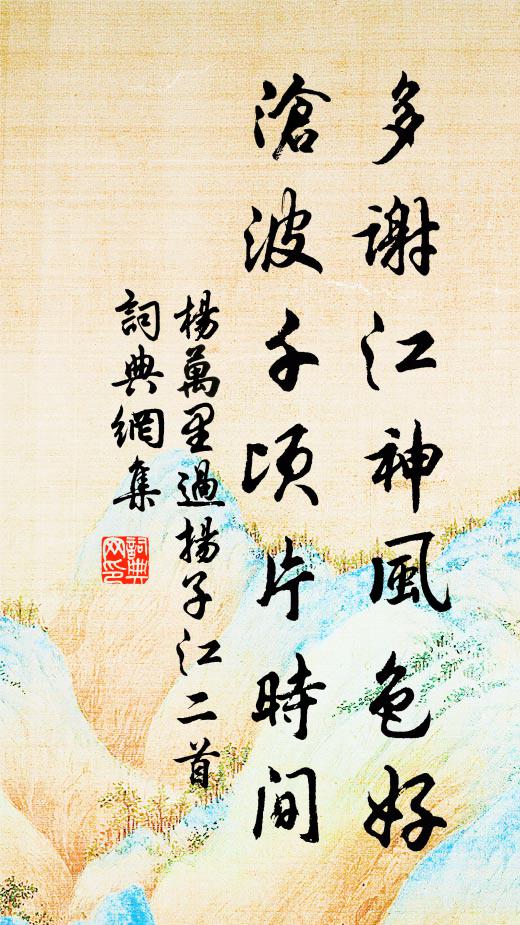 多謝江神風色好
滄波千頃片時間
楊萬里過揚子江二首
詞典網集
詞典网印